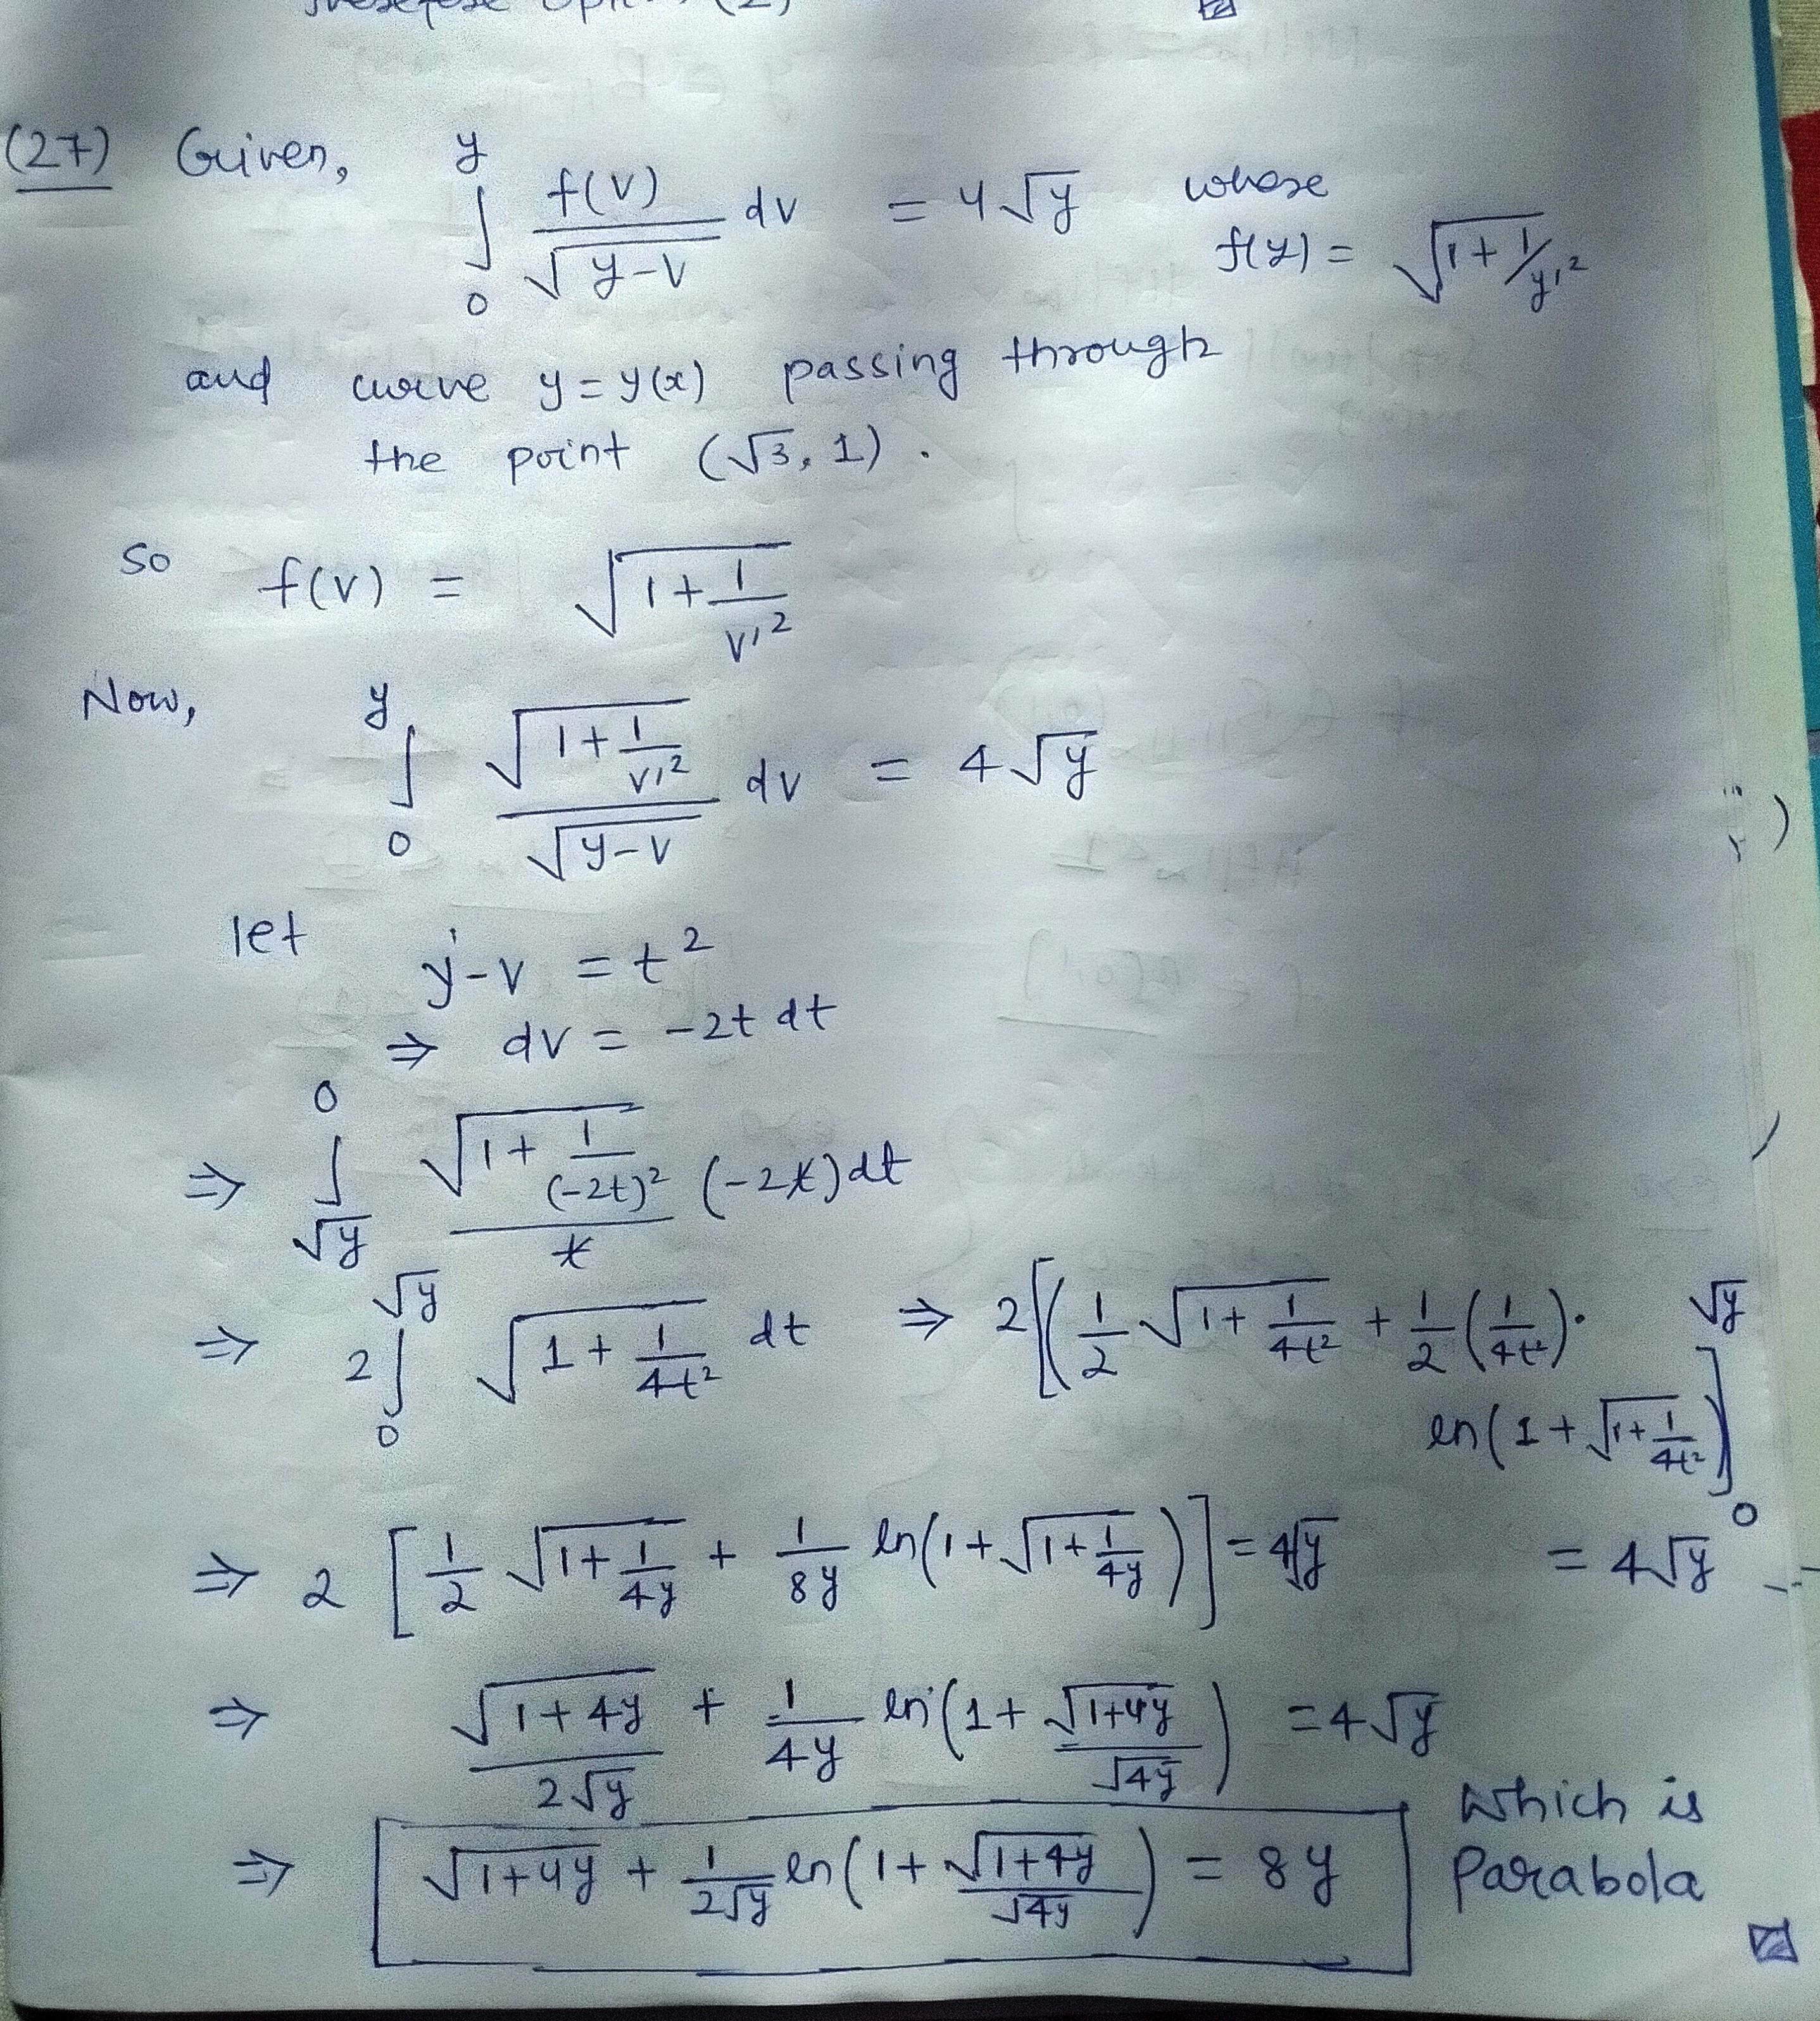 Option (2)
(27) Given, ∫₀^y f(v)/√(y-v) dv = 4√y whose
f(y) = √(1 + 1/y'²)
and curve y = y(x) passing through
the point (√3, 1).
So f(v) = √(1 + 1/v'²)
Now, ∫₀^y √(1 + 1/v'²)/√(y-v) dv = 4√y
let y-v = t²
⇒ dv = -2t dt
⇒ ∫_√y^0 √(1 + 1/(-2t)²)/t (-2t) dt
⇒ 2∫₀^√y √(1 + 1/4t²) dt ⇒ 2[(1/2 √(1 + 1/4t²) + 1/2 (1/4t²).
ln(1 + √(1 + 1/4t²))]₀^√y
= 4√y
⇒ 2[1/2 √(1 + 1/4y) + 1/8y ln(1 + √(1 + 1/4y))] = 4√y
⇒ √(1+4y)/2√y + 1/4y ln(1 + √(1+4y)/√4y) = 4√y
⇒ √(1+4y) + 1/2√y ln(1 + √(1+4y)/√4y) = 8y
Which is
Parabola